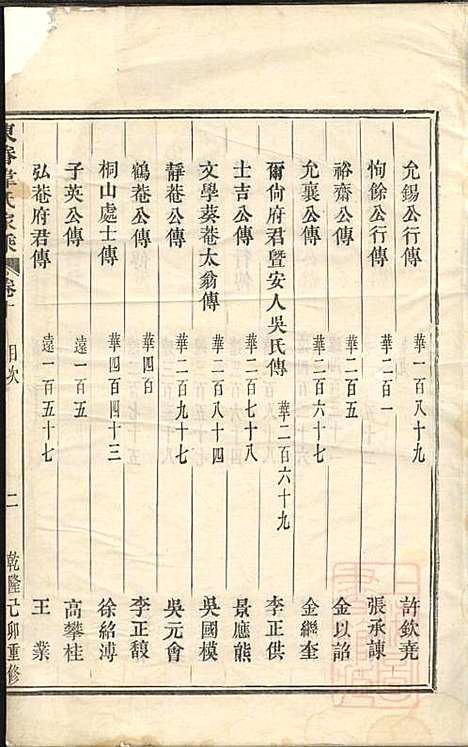 允錫公行傳 華一百八十九 許欽堯
恂餘公行傳 華二百一 張承諫
裕齋公傳 華二百五 金以詔
允襄公傳 華二百六十七 金繼奎
爾尙府君暨安人吳氏傳 華二百六十九 李正供
士吉公傳 華二百七十八 景應熊
文學葵菴太翁傳 華二百八十四 吳國模
靜菴公傳 華二百九十七 吳元會
鶴菴公傳 華四百 李正馥
桐山處士傳 華四百四十三 徐紹溥
子英公傳 遠一百五 高攀桂
弘菴府君傳 遠一百五十七 王業
氏家乘 卷十 目次 二 乾隆己卯重修